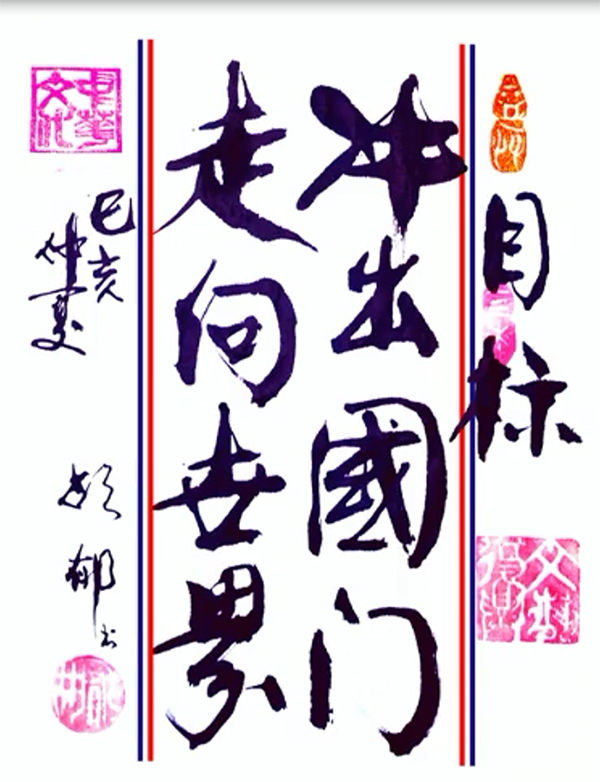 目标
冲出國门
走向世界
己亥
仲夏
郁书
中華文化